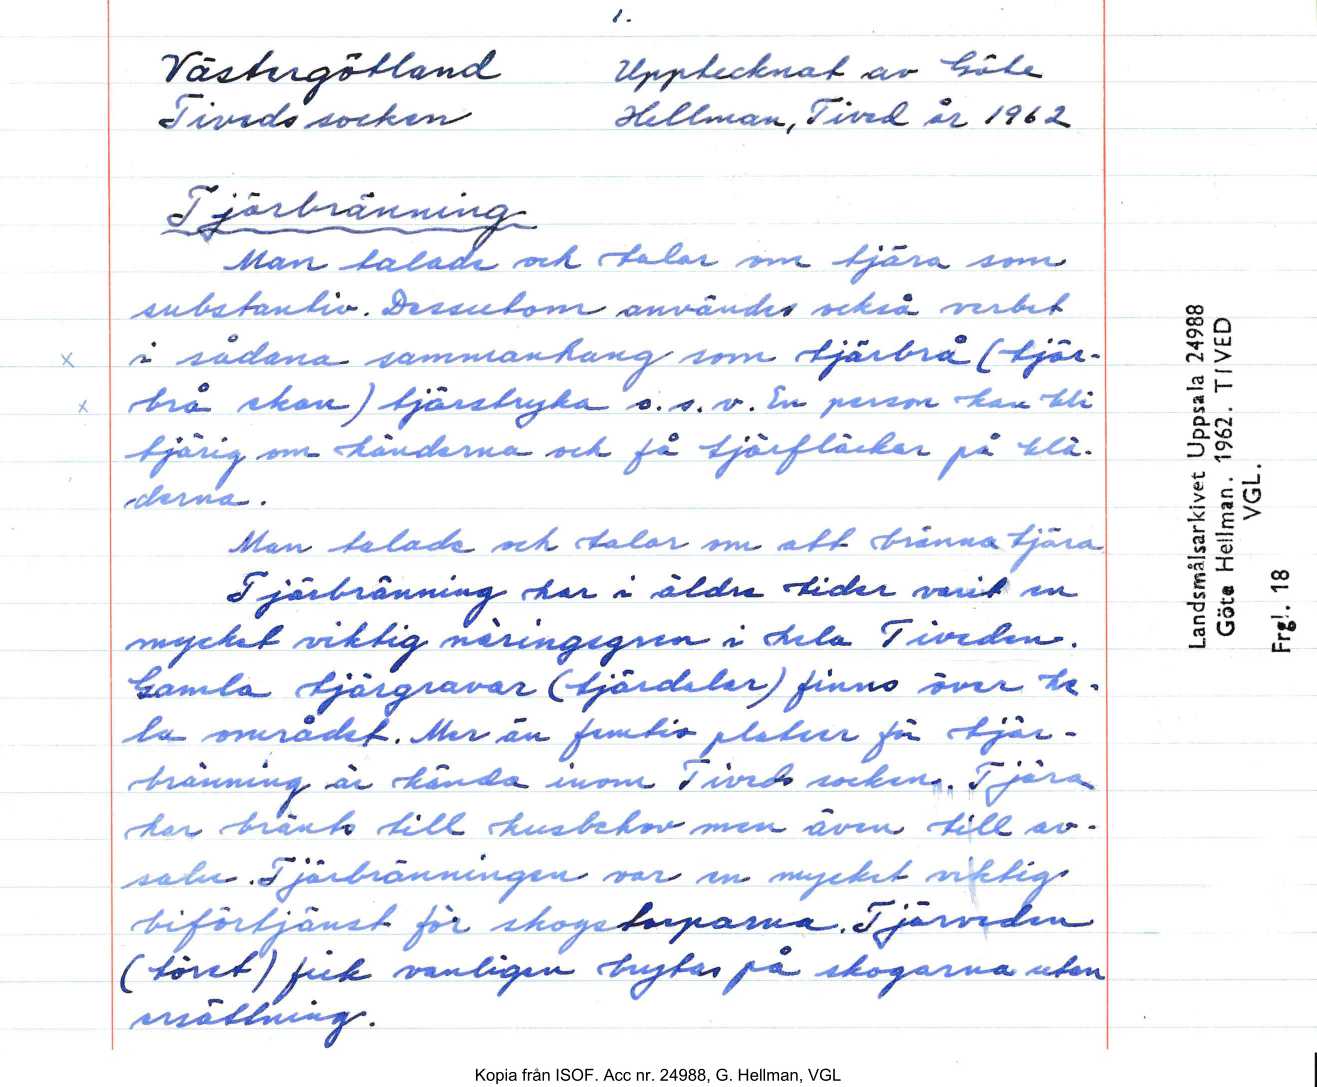 1.
Västergötland
Tiveds socken
Upptecknat av Göte
Hellman, Tived år 1962
Tjärbränning
Man talade och talar om tjära som
substantiv. Dessutom användes också verbet
i sådana sammanhang som tjärbrå (tjär-
brå skon) tjärstryka o.s.v. En person kan bli
tjärig om händerna och få tjärfläckar på klä-
derna.
Man talade och talar om att bränna tjära
Tjärbränning har i äldre tider varit en
mycket viktig näringsgren i hela Tiveden.
Gamla tjärgravar (tjärdalar) finns över he-
la området. Mer än femtio platser för tjär-
bränning är kända inom Tiveds socken. Tjära
har bränts till husbehov men även till av-
salu. Tjärbränningen var en mycket viktig
biförtjänst för skogstorparna. Tjärveden
(töret) fick vanligen brytas på skogarna utan
ersättning.
Landsmålsarkivet Uppsala 24988
Göte Hellman. 1962. TIVED
VGL.
Frgl. 18
Kopia från ISOF. Acc nr. 24988, G. Hellman, VGL